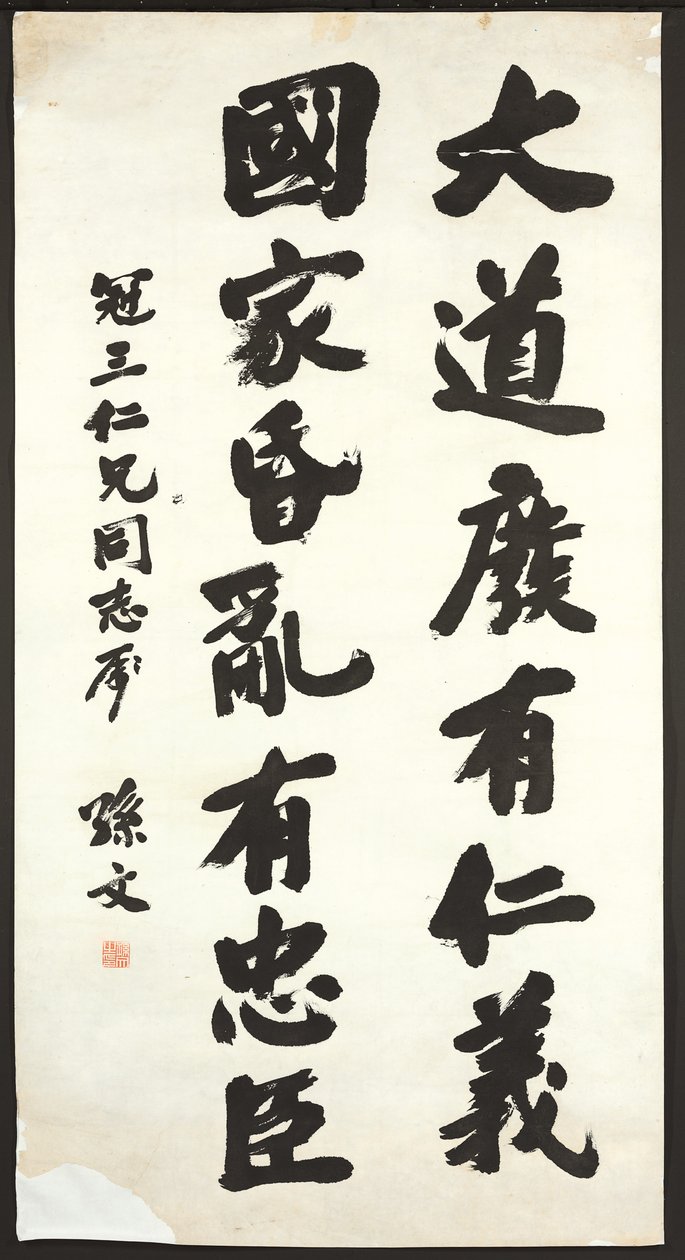 大道廢有仁義
國家昏亂有忠臣
冠三仁兄同志屬
孫文